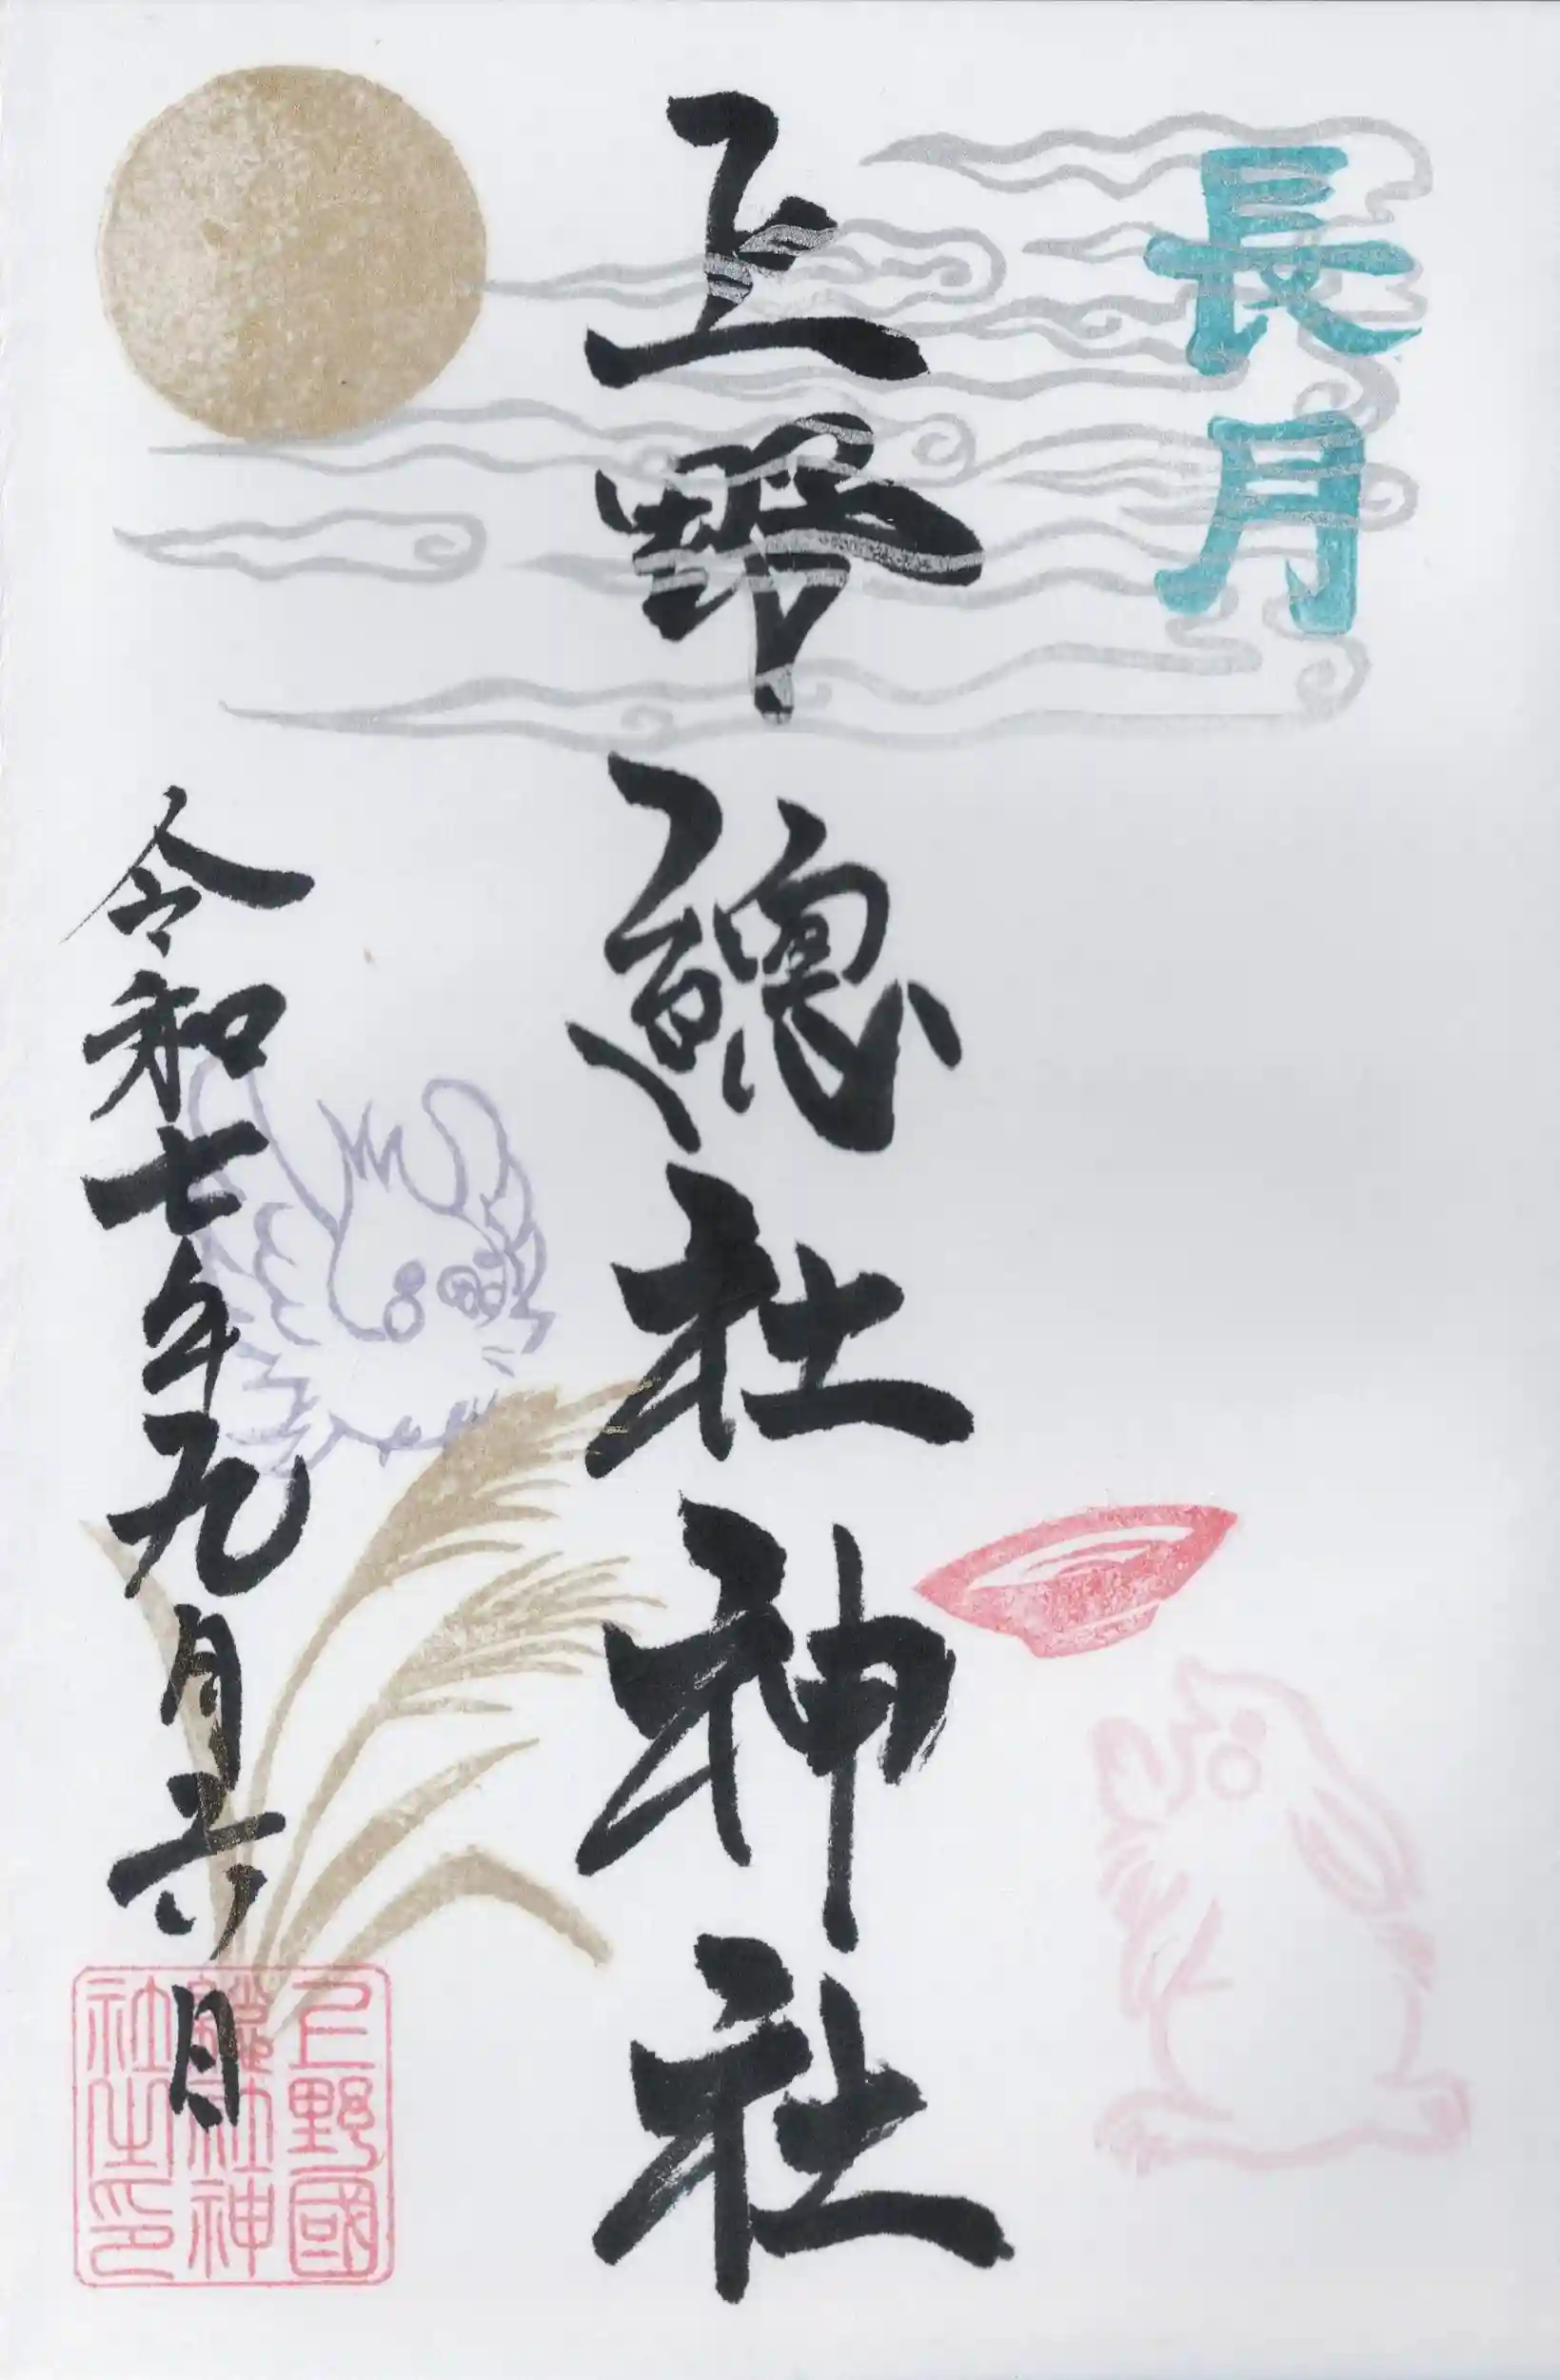 長月
上野総社神社
令和七年九月六日
上野國
総社神
社之印